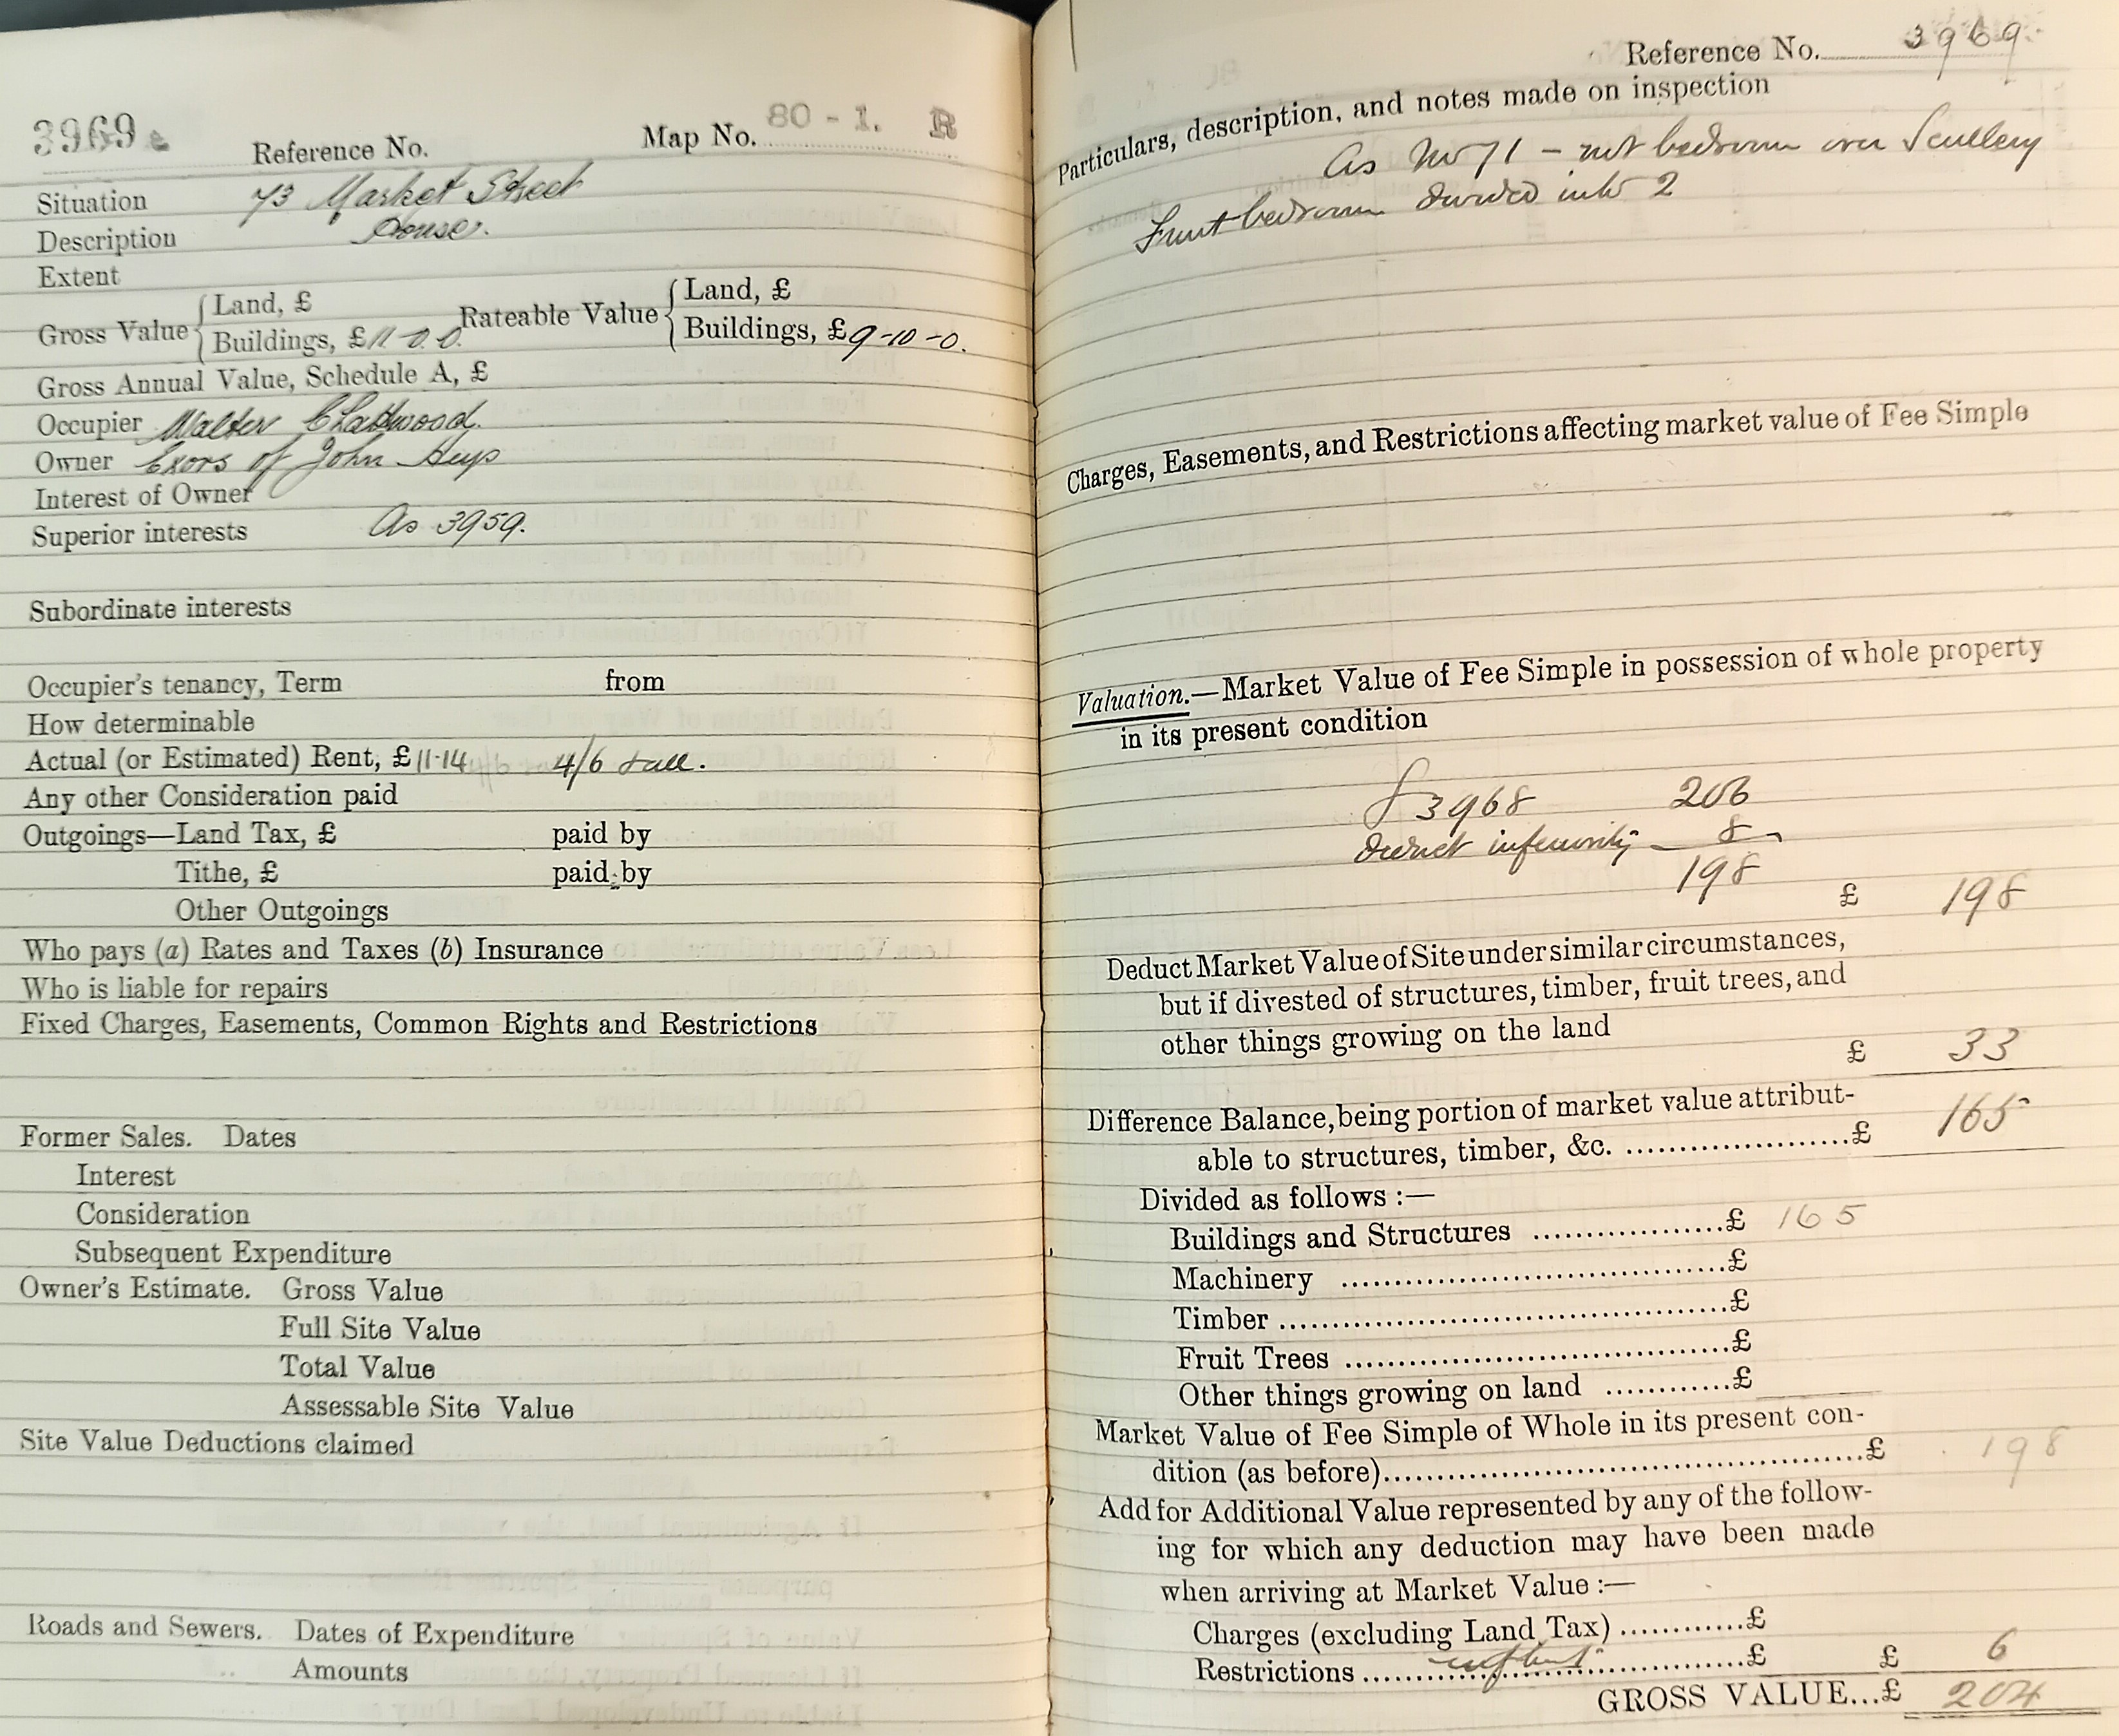 3969
Reference No.
Map No. 80 - 1. B
Situation 73 Market Street
Description House.
Extent
Gross Value { Land, £
Buildings, £ 11-0.0.
Rateable Value { Land, £
Buildings, £ 9-10-0.
Gross Annual Value, Schedule A, £
Occupier Walter Chatwood.
Owner Exors of John Heys
Interest of Owner
Superior interests As 3959.
Subordinate interests
Occupier's tenancy, Term from
How determinable
Actual (or Estimated) Rent, £ 11-14 4/6
Any other Consideration paid
Outgoings—Land Tax, £ paid by
Tithe, £ paid by
Other Outgoings
Who pays (a) Rates and Taxes (b) Insurance
Who is liable for repairs
Fixed Charges, Easements, Common Rights and Restrictions
Former Sales. Dates
Interest
Consideration
Subsequent Expenditure
Owner's Estimate. Gross Value
Full Site Value
Total Value
Assessable Site Value
Site Value Deductions claimed
Roads and Sewers. Dates of Expenditure
Amounts
Reference No. 3969
Particulars, description, and notes made on inspection
As No 71 - not bedroom over Scullery
Front bedroom divided into 2
Charges, Easements, and Restrictions affecting market value of Fee Simple
Valuation.—Market Value of Fee Simple in possession of whole property
in its present condition
3968 206
Deduct inferiority 8
198
£ 198
Deduct Market Value of Site under similar circumstances,
but if divested of structures, timber, fruit trees, and
other things growing on the land
£ 33
Difference Balance, being portion of market value attribut-
able to structures, timber, &c. ......................£ 165
Divided as follows :—
Buildings and Structures ...................£ 165
Machinery ......................................£
Timber ............................................£
Fruit Trees ......................................£
Other things growing on land ............£
Market Value of Fee Simple of Whole in its present con-
dition (as before)................................................£ 198
Add for Additional Value represented by any of the follow-
ing for which any deduction may have been made
when arriving at Market Value :—
Charges (excluding Land Tax) ............£
Restrictions ......................................£ £ 6
GROSS VALUE...£ 204